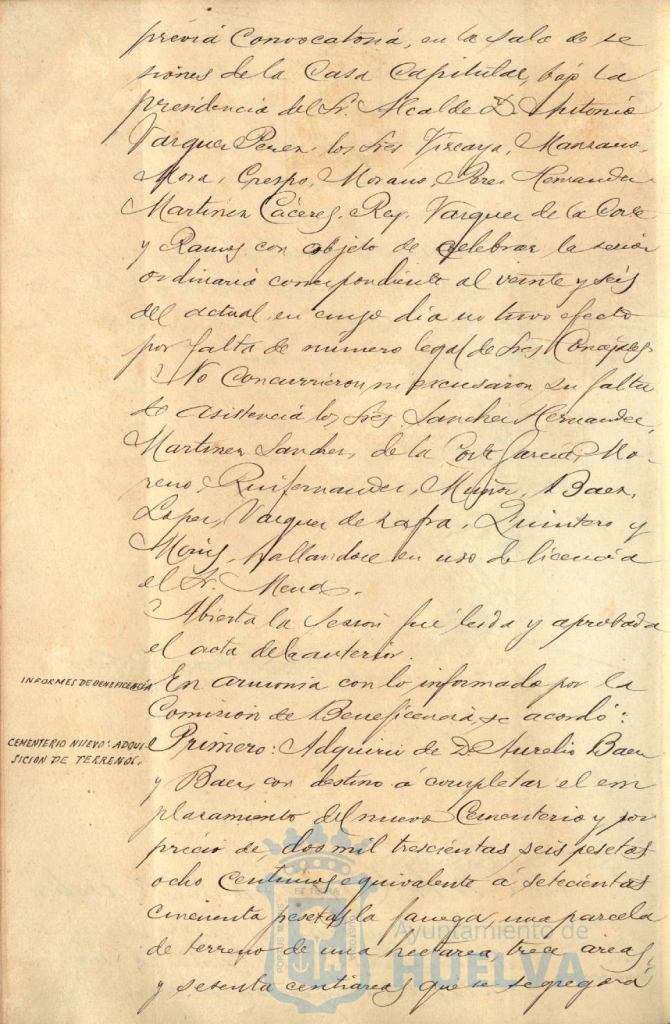 prévia Convocatoria, en la sala de se
siones de la Casa Capitular, bajo la
presidencia del Sr. Alcalde D. Antonio
Vazquez Perez, los Sres Vizcaya, Manzano,
Mora, Crespo, Morano, Perez Hernandez
Martinez Cáceres, Rey, Vazquez de la Corte
y Ramos con objeto de celebrar la sesión
ordinaria correspondiente al veinte y seis
del actual, en cuyo día no tuvo efecto
por falta de numero legal de Sres Concejales.
No Concurrieron ni escusaron su falta
de asistencia los Sres. Sanchez Hernandez,
Martinez Sanchez, de la Corte García, Mo-
reno, Ruifernandez, Muñoz, Baez,
Lopez, Vazquez de Zafra, Quintero y
hallandose en uso de licencia
el Sr. Mendez.
Abierta la Sesión fué leida y aprobada
el acta de la anterior.
INFORMES DE BENEFICENCIA
En armonia con lo informado por la
Comisión de Beneficencia, se acordó:
CEMENTERIO NUEVO: ADQUI-
SICION DE TERRENOS.
Primero: Adquirir de D. Aurelio Baez
y Baez, con destino á completar el em
plazamiento del nuevo Cementerio y por
precio de, dos mil trescientas seis pesetas
ocho Centimos equivalente á setecientas
cincuenta pesetas la fanega, una parcela
de terreno de una hectarea, trece areas,
y setenta centiareas que se segregará
Ayuntamiento de
HUELVA